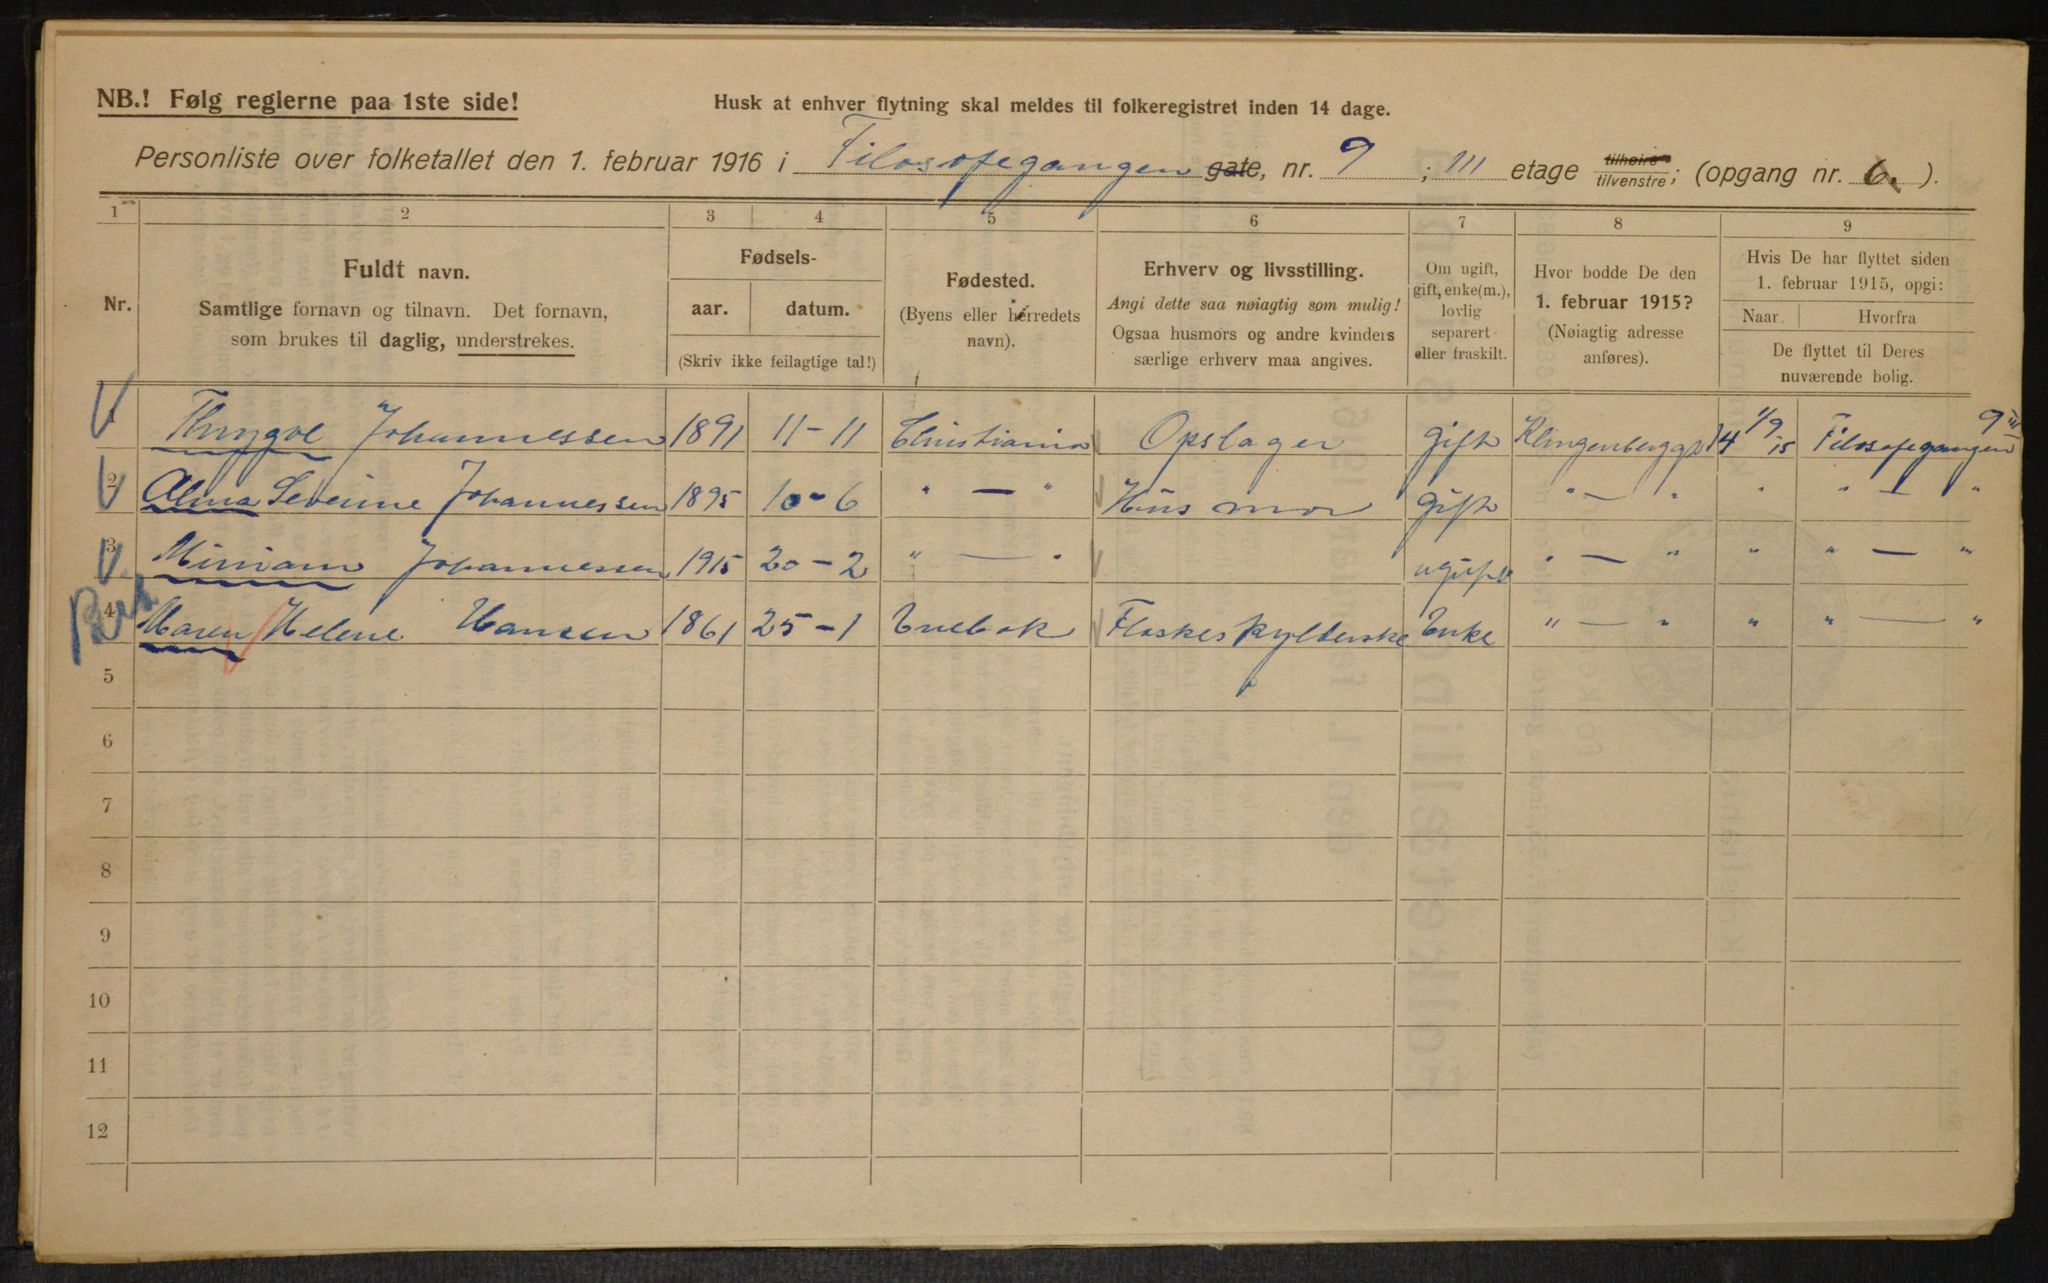 NB.! Følg reglerne paa 1ste side!
Husk at enhver flytning skal meldes til folkeregistret inden 14 dage.
Personliste over folketallet den 1. februar 1916 i Filosofegangen gate, nr. 9 ; III etage tilhøire tilvenstre; (opgang nr. 6. ).
1 2 3 4 5 6 7 8 9
Nr.
Fuldt navn.
Samtlige fornavn og tilnavn. Det fornavn,
som brukes til daglig, understrekes.
Fødsels-
aar. datum.
(Skriv ikke feilagtige tal!)
Fødested.
(Byens eller herredets
navn).
Erhverv og livsstilling.
Angi dette saa nøiagtig som mulig!
Ogsaa husmors og andre kvinders
særlige erhverv maa angives.
Om ugift,
gift, enke(m.),
lovlig
separert
eller fraskilt.
Hvor bodde De den
1. februar 1915?
(Nøiagtig adresse
anføres).
Hvis De har flyttet siden
1. februar 1915, opgi:
Naar. Hvorfra
De flyttet til Deres
nuværende bolig.
1 Thrygve Johannessen 1891 11-11 Christiania Opslager gift Klingenberggt 4 1/9 15 Filosofegangen 9 III
2 Alma Severine Johannessen 1895 10-6 " — " Husmor gift " — " " " — "
3 Miriam Johannessen 1915 20-2 " — " ugift " — " " " — "
4 Maren Helene Hansen 1861 25-1 Enebak Flaskeskyllerske Enke " — " " " — "
5
6
7
8
9
10
11
12